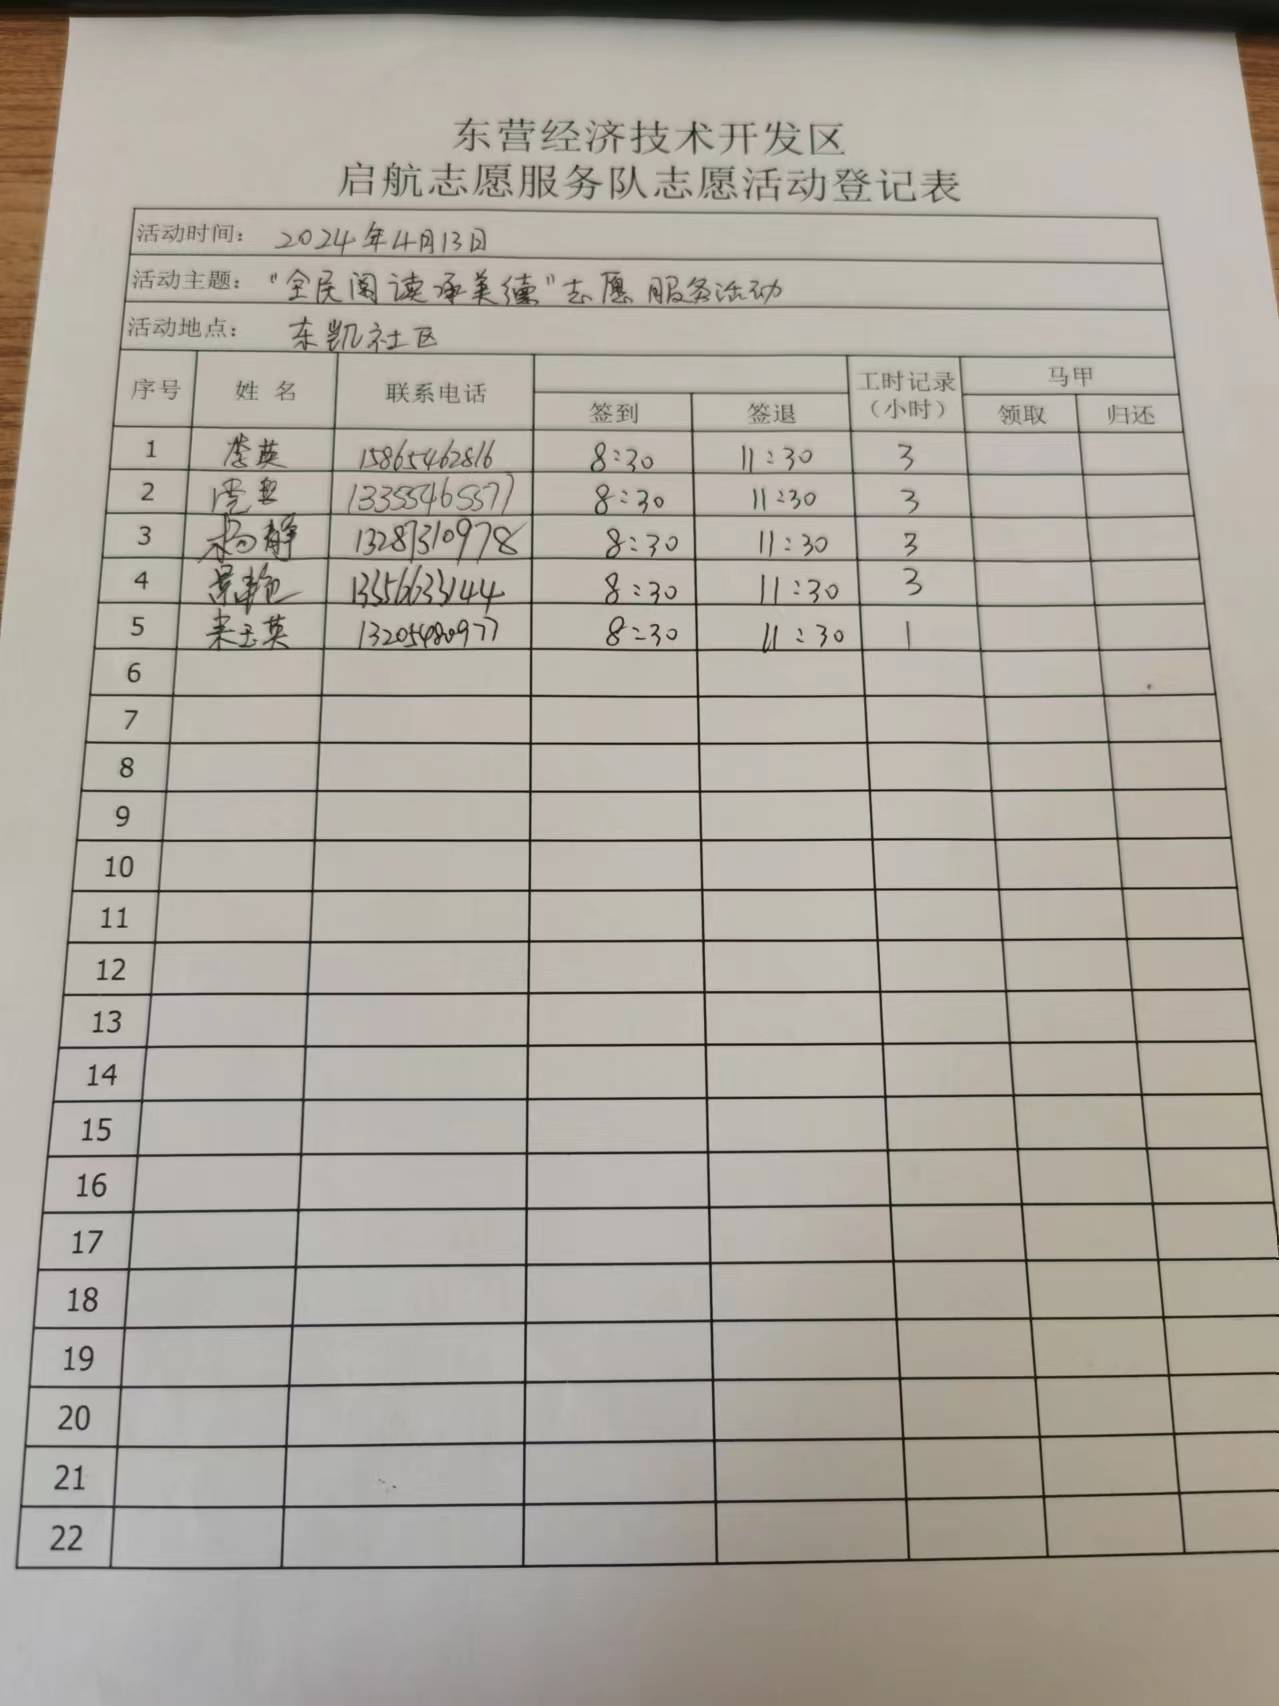 东营经济技术开发区
启航志愿服务队志愿活动登记表
活动时间： 2024年4月13日
活动主题： "全民阅读承美德"志愿服务活动
活动地点： 东凯社区
序号 姓 名 联系电话 工时记录（小时） 马甲
签到 签退 领取 归还
1 李英 15865462816 8:30 11:30 3
2 13355465577 8:30 11:30 3
3 杨静 13287310978 8:30 11:30 3
4 13356633144 8:30 11:30 3
5 来玉英 13205480977 8:30 11:30 1
6
7
8
9
10
11
12
13
14
15
16
17
18
19
20
21
22